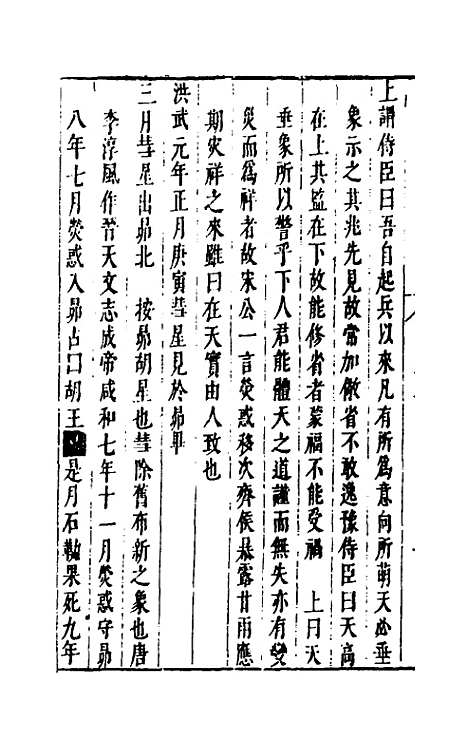 上謂侍臣曰吾自起兵以來凡有所爲意向所萌天必垂
象示之其兆先見故常加儆省不敢逸豫侍臣曰天高
在上其監在下故能修省者蒙福不能受禍　上曰天
垂象所以警乎下人君能體天之道謹而無失亦有變
災而爲祥者故宋公一言熒惑移次齊侯暴露甘雨應
期灾祥之來雖曰在天實由人致也
洪武元年正月庚寅彗星見於昴畢
三月彗星出昴北　按昴胡星也彗除舊布新之象也唐
李淳風作晉天文志成帝咸和七年十一月熒惑守昴
八年七月熒惑入昴占曰胡王是月石勒果死九年